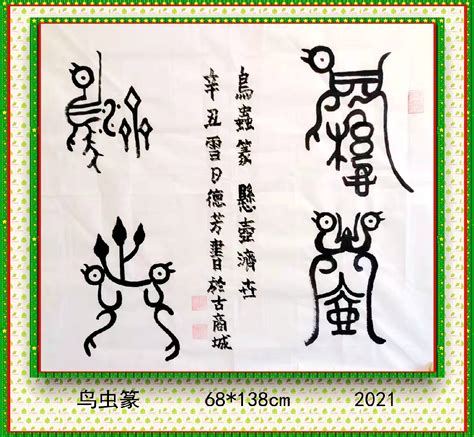 鳥蟲篆懸壺濟卋
辛丑雪月德芳書於古商城
鸟虫篆 68*138cm 2021